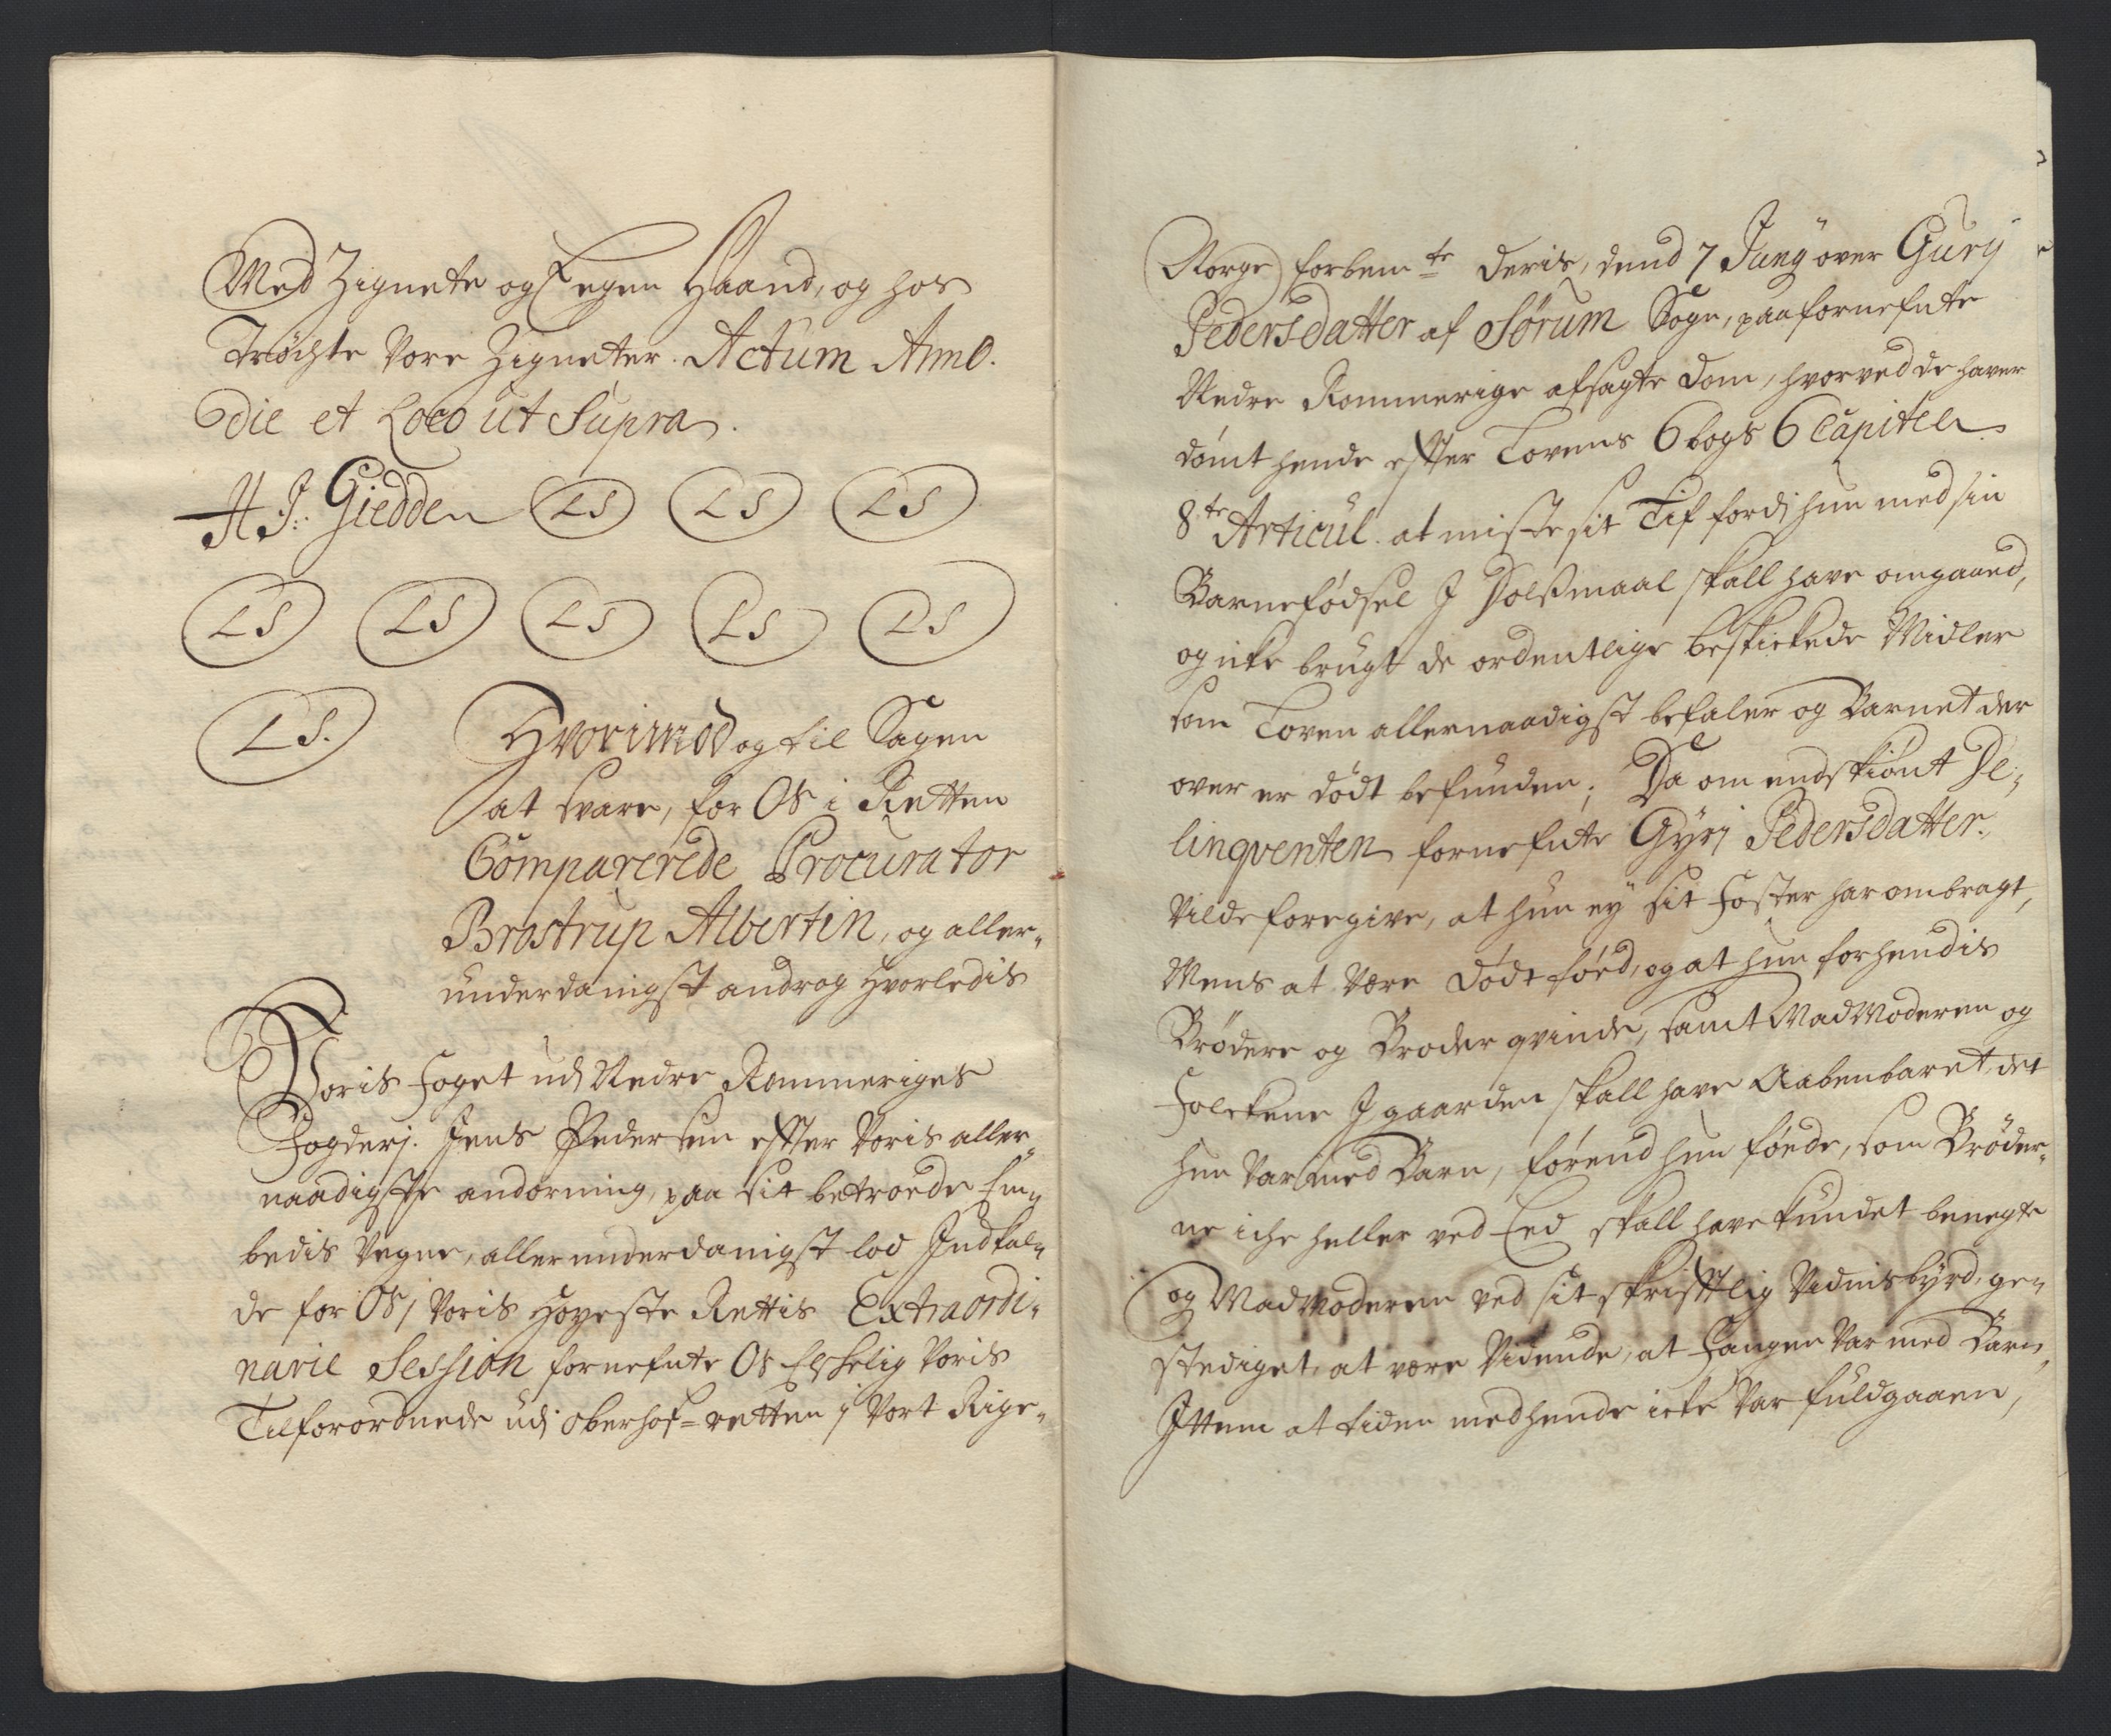 Med Zignete og Eegen Haand, og hos
Tröchte Vore Zigneter. Actum Anno.
die et Loco ut Supra.
H J: Giedden LS LS LS
LS LS LS LS LS
LS.
Hvorimod og til Sagen
at svare, for Os i Retten
Comparerede Procurator
Brostrup Albertin, og aller„
underdanigst androg Hvorledis
Voris Foget udi Nedre Rommeriges
Fogderj. Jens Pedersen effter Voris aller„
naadigste andorning, paa sit betroede Em„
bedis Vegne, allerunderdanigst lod Indkal„
de for Os i Voris Høyeste Rettis Extraordi„
narie Session fornefnte Os Elskelig Voris
Tilforordnede udi Oberhof=retten i Vort Rige„
Norge forbemte Deris, dend 7 Junÿ over Gurÿ
Pedersdatter af Sörum Sogn, paa fornefnte
Nedre Rommerige afsagte Dom, hvorved de haver
dömt hende effter Lovens 6 bogs 6 Capitel
8te Articul. at miste sit Lif fordj hun med sin
Barnefödsel J Dolsmaal skall have omgaaed,
og icke brugt de ordentlige beskickede Midler
som Loven allernaadigst befaler og Barnet der
over er dödt befunden; Da om endskiönt De„
linqventen fornefnte Gÿrj Pedersdatter.
Vilde foregive, at hun eÿ sit Foster har ombragt,
Mens at Vere dödt föed, og at hun for hendis
Brödere og Broder qvinde, samt Madmoderen og
Folckene J gaarden skall have Aabenbaret, det
hun Var med Barn, förend hun föede, som Bröder„
ne iche heller ved Eed skall have kundet benegte
og Madmoderen ved sit skrifftlig Vidnisbÿrd, ge„
stediget, at vere Vidende, at Fangen Var med Barn,
Jttem at tiden med hende icke Var fuldgaaen,